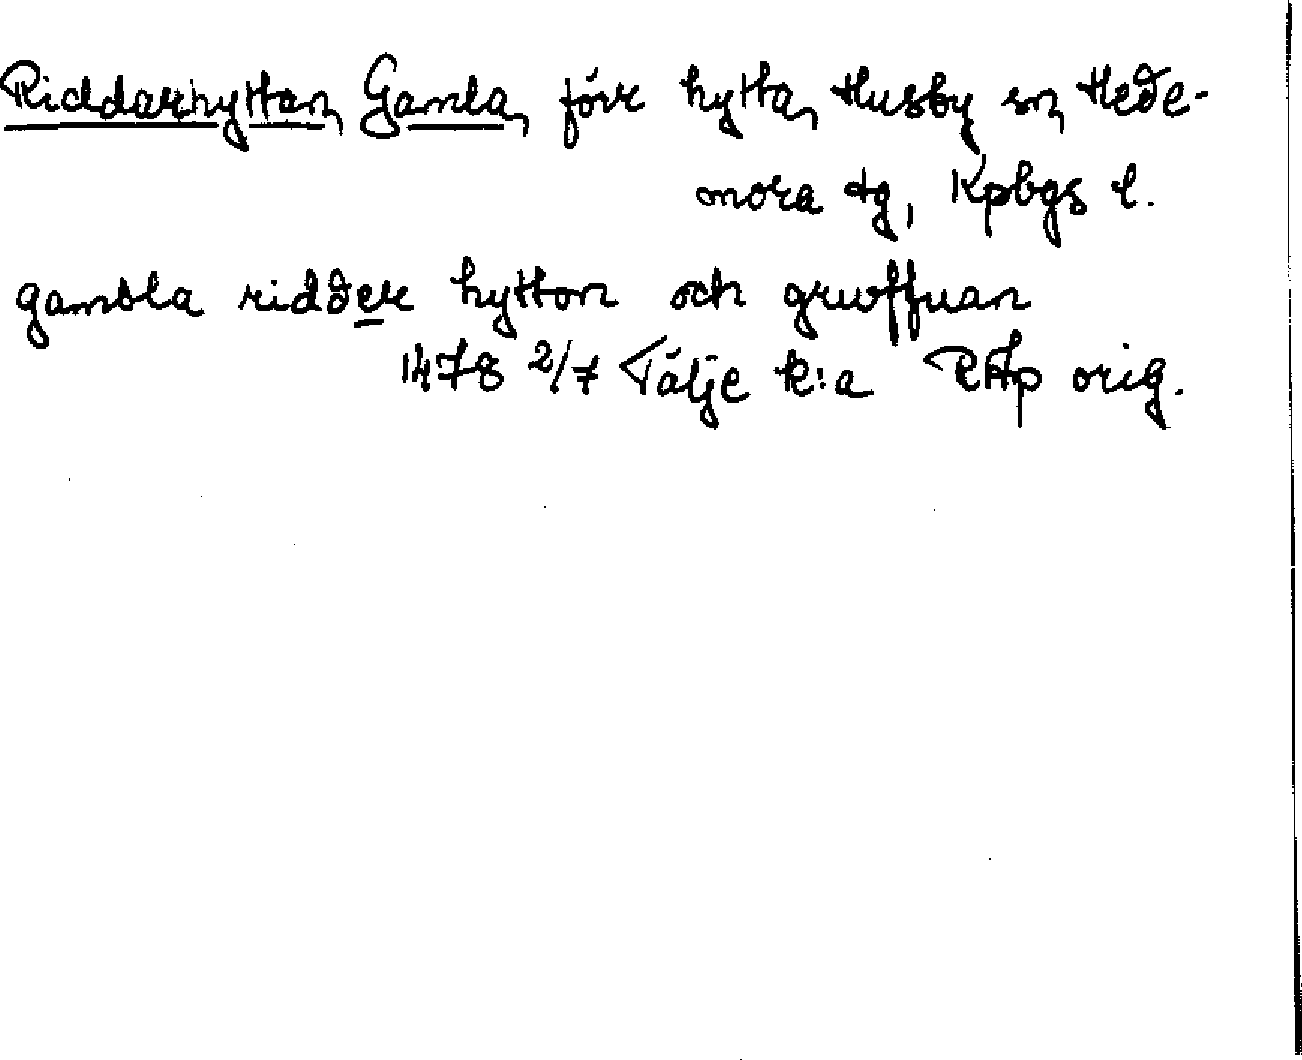 Riddarhyttan, Gamla, förr hytta, Husby sn, Hede-
mora tg, Kpbgs l.
gambla ridder hytton och gruffuan
1478 2/7 Tälje k:a RAp orig.